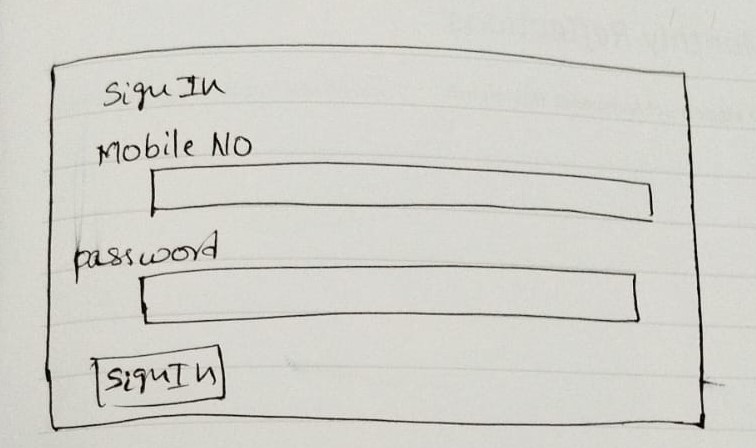 SignIn
Mobile NO
password
SignIn